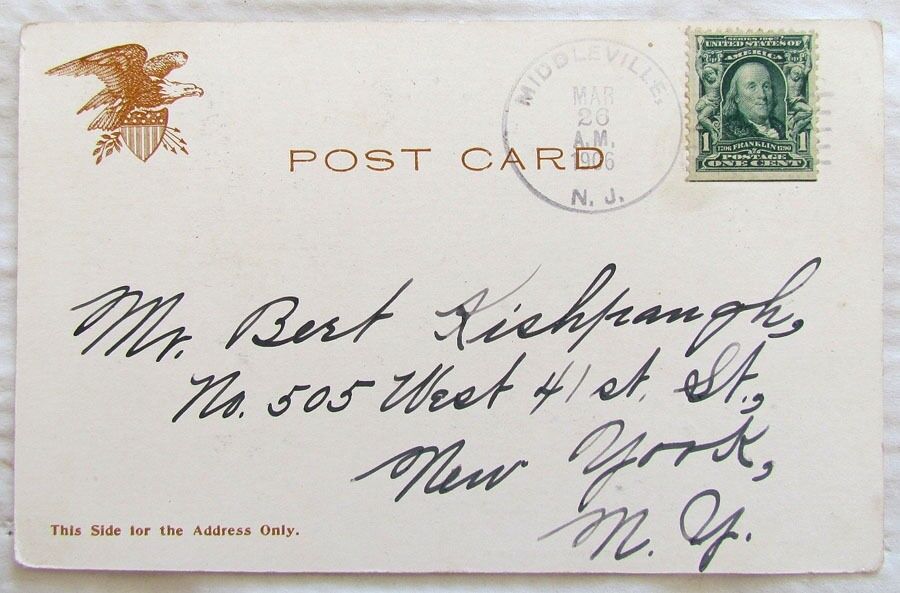 MIDDLEVILLE,
MAR
26
A.M.
1906
N. J.
SERIES 1902
UNITED STATES OF
AMERICA
1 1706 FRANKLIN 1790 1
POSTAGE
ONE CENT
POST CARD
Mr. Bert Kishpaugh,
No. 505 West 41st. St.,
New York,
N. Y.
This Side for the Address Only.